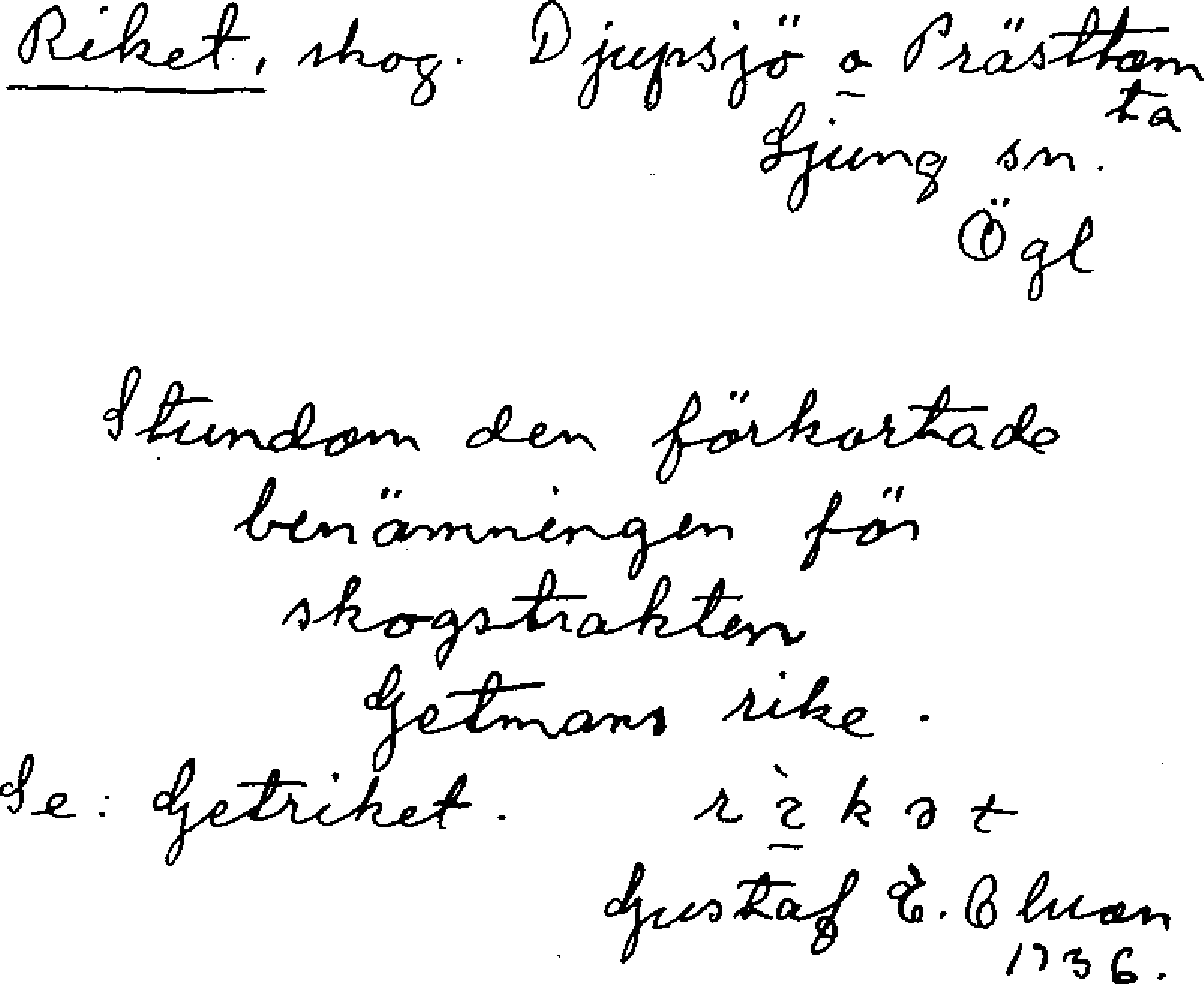 Riket, skog. Djupsjö o Prästtom
ta
Ljung sn.
Ögl
Stundom den förkortade
benämningen för
skogstrakten
Getmans rike.
Se: Getriket. rìkət
Gustaf E.
1936.